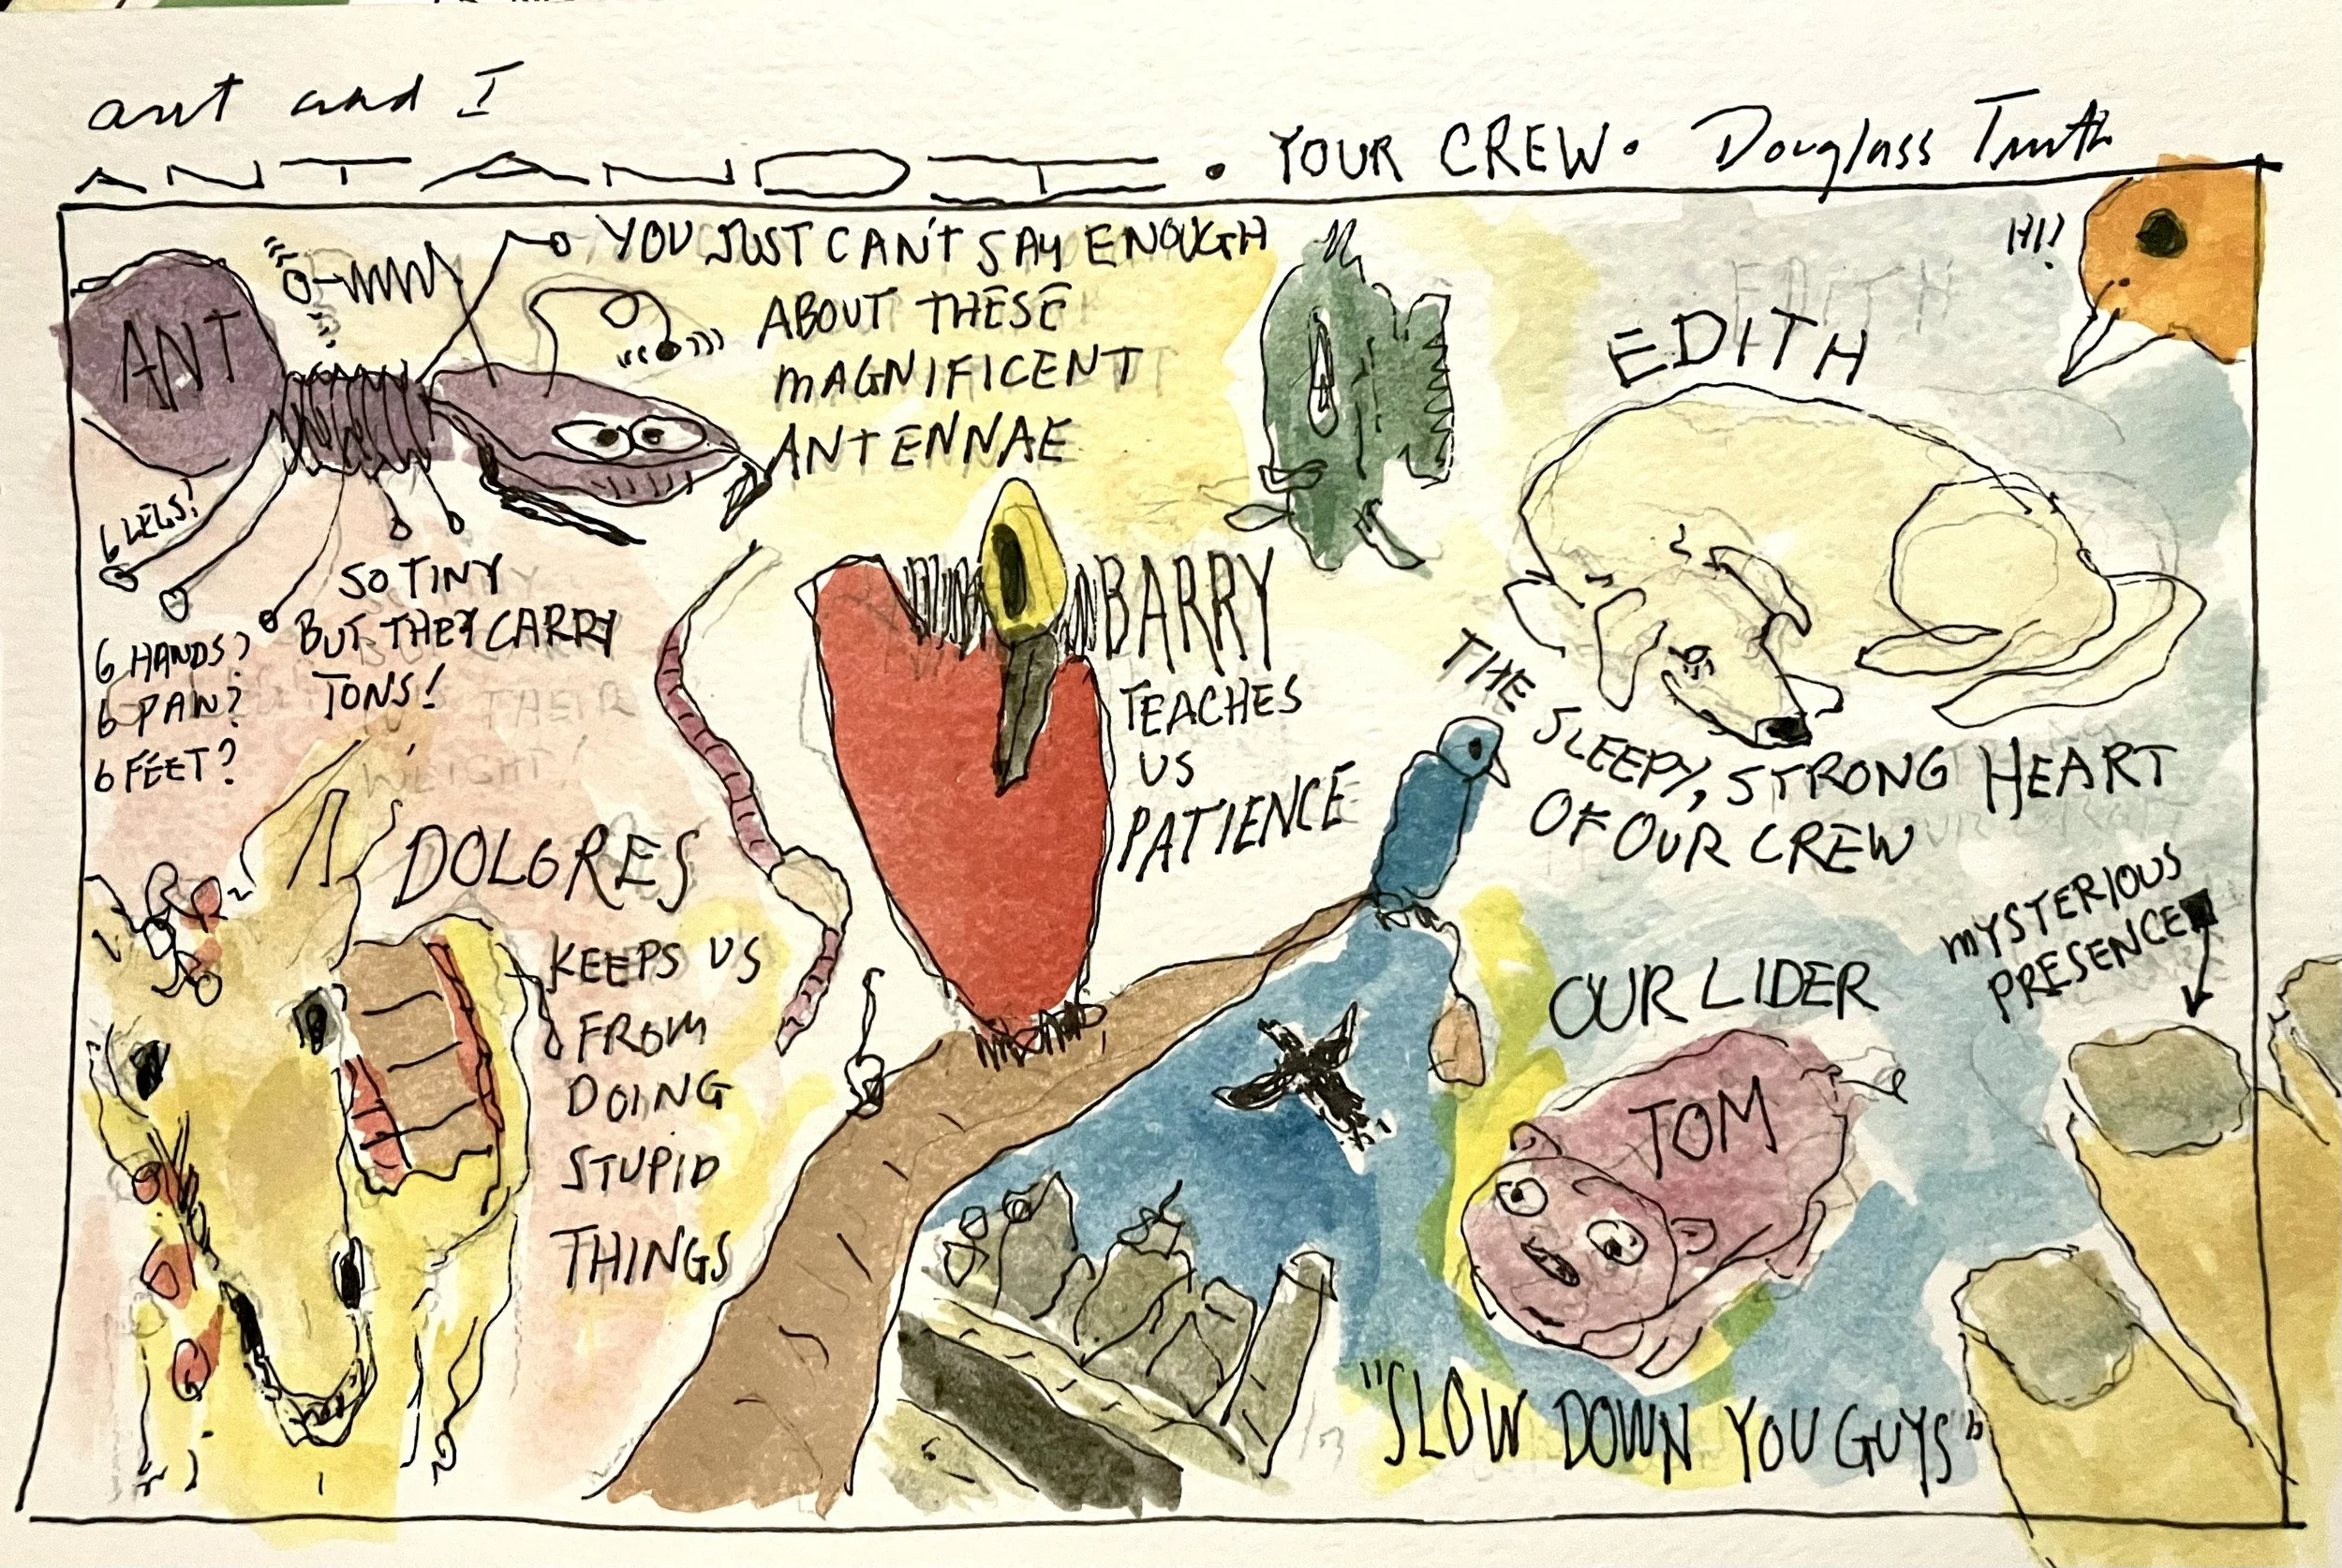 ant and I
ANT AND I • YOUR CREW • Douglass Truth
YOU JUST CAN'T SAY ENOUGH
ABOUT THESE
MAGNIFICENT
ANTENNAE
ANT
6 LEGS?
6 HANDS?
6 PAW?
6 FEET?
SO TINY
BUT THEY CARRY
TONS!
HI!
EDITH
THE SLEEPY, STRONG HEART
OF OUR CREW
BARRY
TEACHES
US
PATIENCE
DOLORES
KEEPS US
FROM
DOING
STUPID
THINGS
MYSTERIOUS
PRESENCE
OUR LIDER
TOM
"SLOW DOWN YOU GUYS"